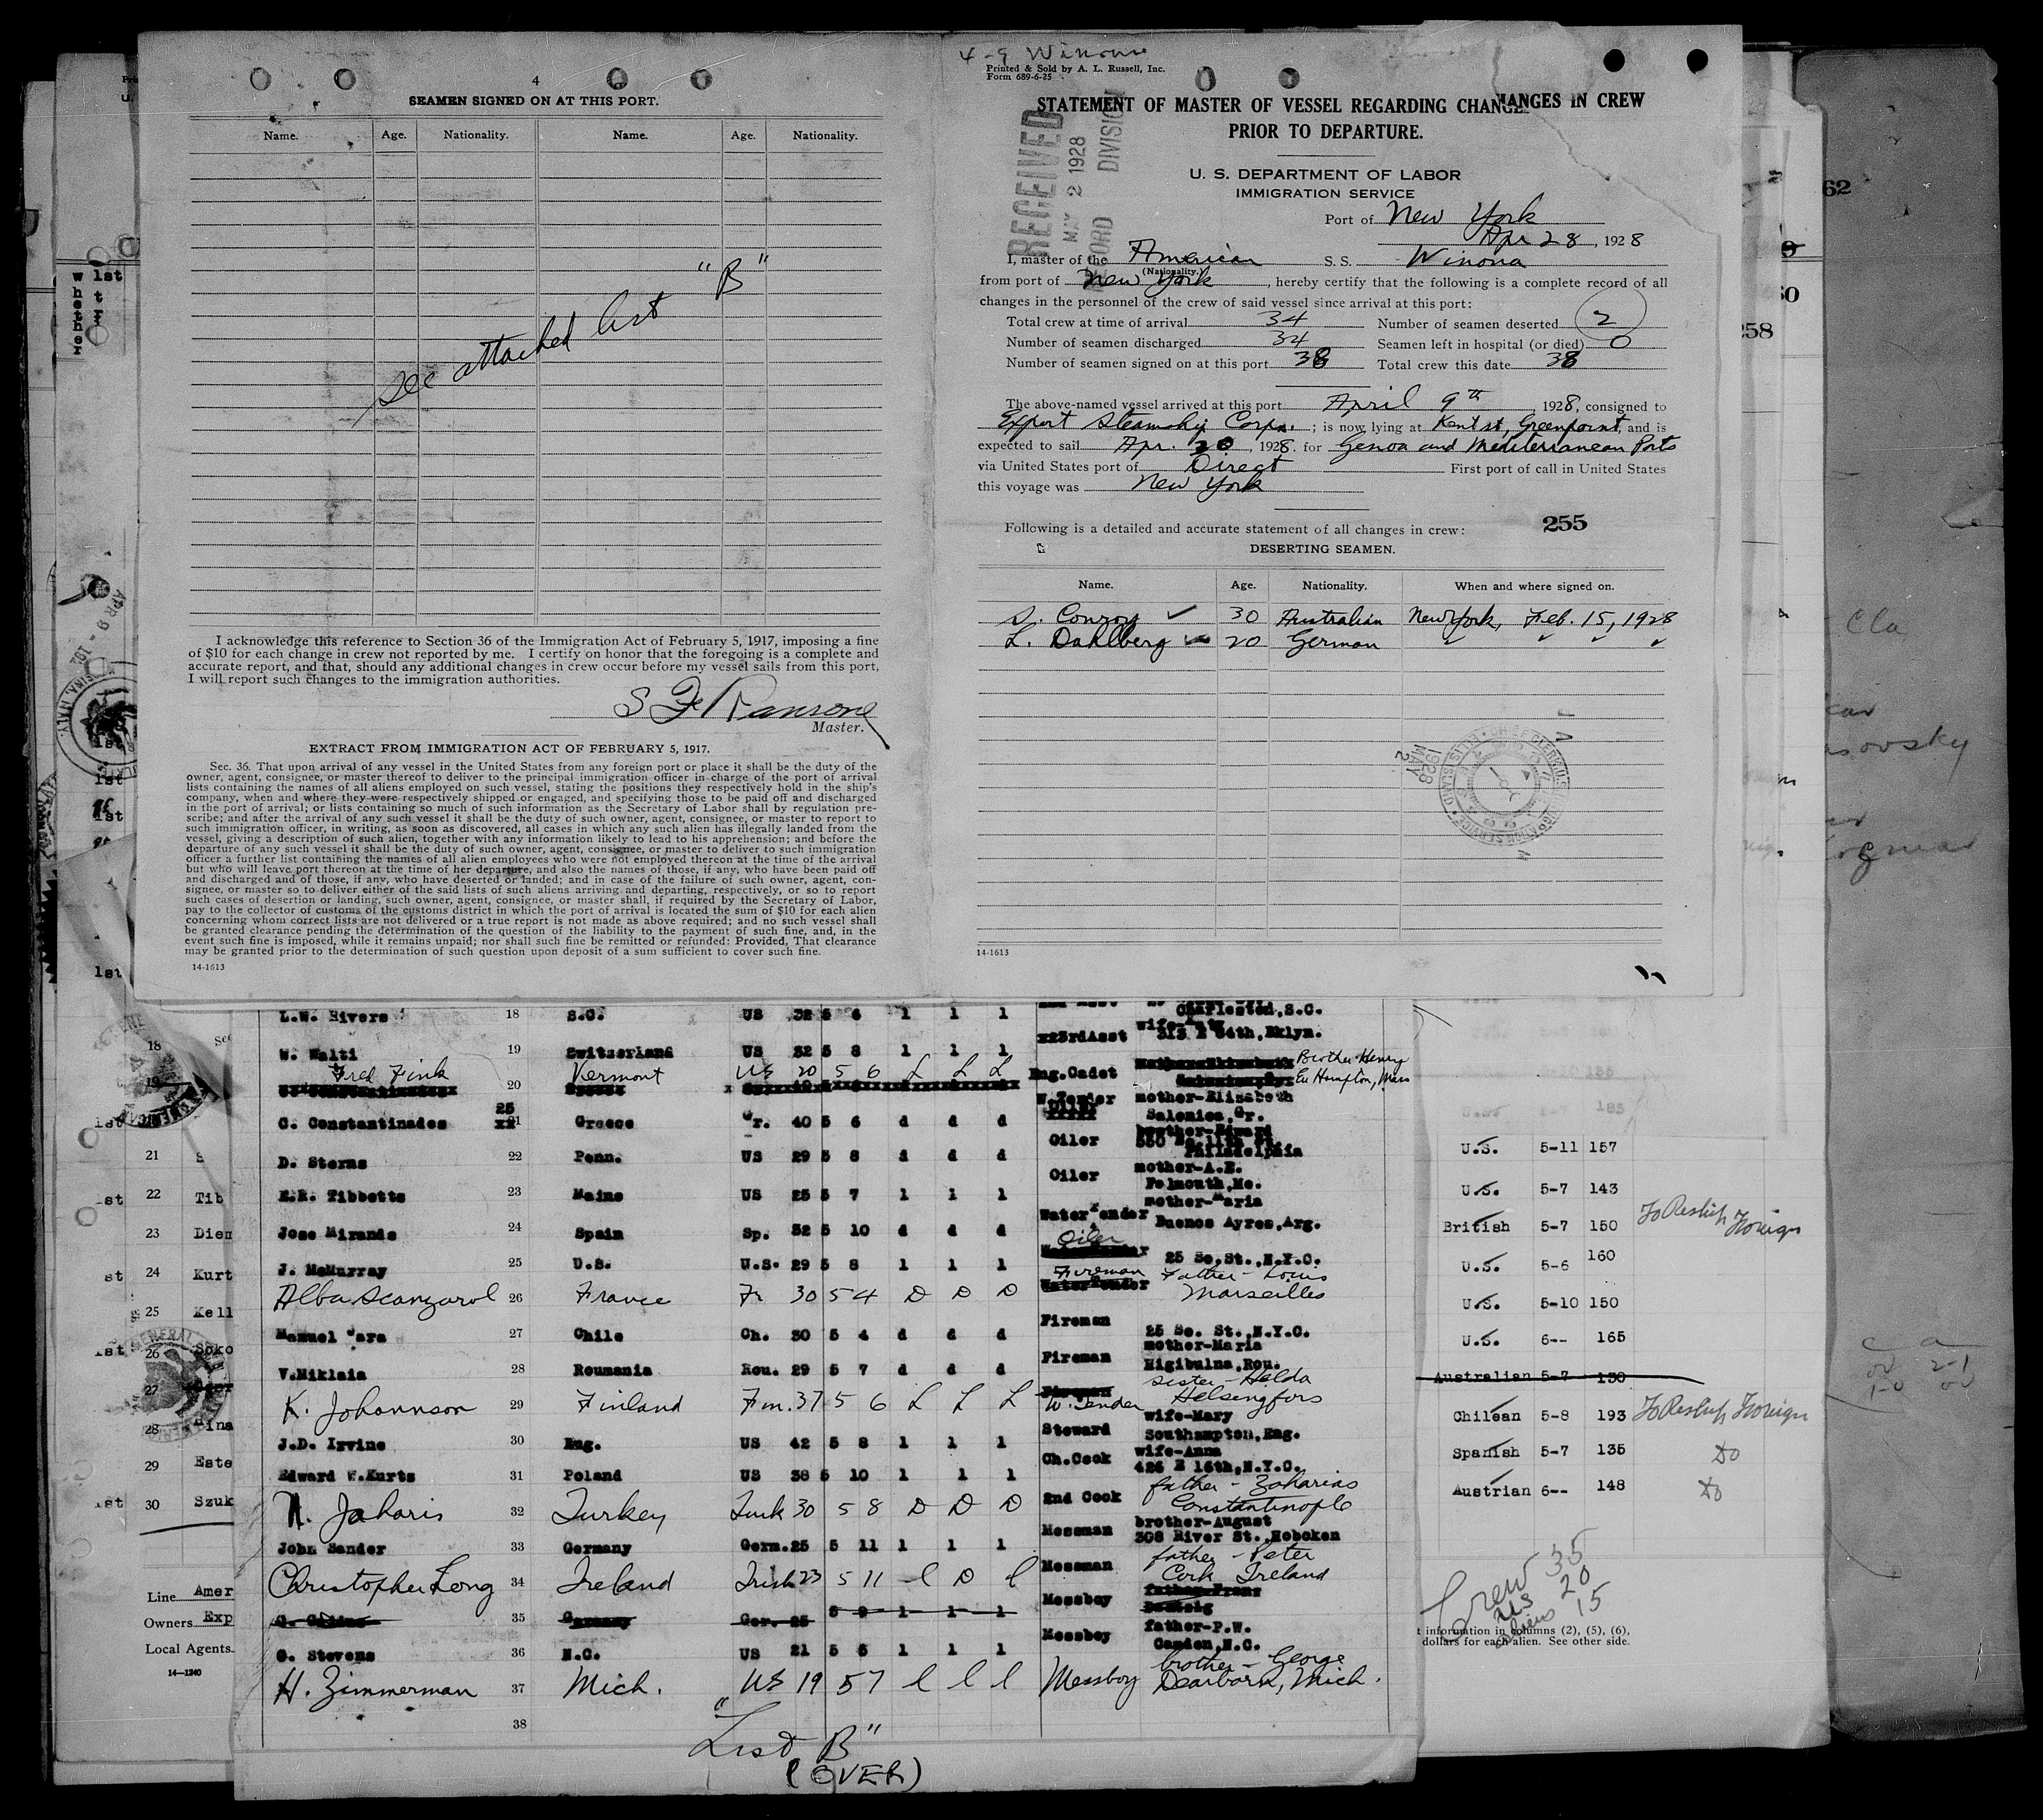 4
SEAMEN SIGNED ON AT THIS PORT.
Name. Age. Nationality. Name. Age. Nationality.
See attached list "B"
I acknowledge this reference to Section 36 of the Immigration Act of February 5, 1917, imposing a fine
of $10 for each change in crew not reported by me. I certify on honor that the foregoing is a complete and
accurate report, and that, should any additional changes in crew occur before my vessel sails from this port,
I will report such changes to the immigration authorities.
S F Ransone
Master.
EXTRACT FROM IMMIGRATION ACT OF FEBRUARY 5, 1917.
Sec. 36. That upon arrival of any vessel in the United States from any foreign port or place it shall be the duty of the
owner, agent, consignee, or master thereof to deliver to the principal immigration officer in charge of the port of arrival
lists containing the names of all aliens employed on such vessel, stating the positions they respectively hold in the ship's
company, when and where they were respectively shipped or engaged, and specifying those to be paid off and discharged
in the port of arrival; or lists containing so much of such information as the Secretary of Labor shall by regulation pre-
scribe; and after the arrival of any such vessel it shall be the duty of such owner, agent, consignee, or master to report to
such immigration officer, in writing, as soon as discovered, all cases in which any such alien has illegally landed from the
vessel, giving a description of such alien, together with any information likely to lead to his apprehension; and before the
departure of any such vessel it shall be the duty of such owner, agent, consignee, or master to deliver to such immigration
officer a further list containing the names of all alien employees who were not employed thereon at the time of the arrival
but who will leave port thereon at the time of her departure, and also the names of those, if any, who have been paid off
and discharged and of those, if any, who have deserted or landed; and in case of the failure of such owner, agent, con-
signee, or master so to deliver either of the said lists of such aliens arriving and departing, respectively, or so to report
such cases of desertion or landing, such owner, agent, consignee, or master shall, if required by the Secretary of Labor,
pay to the collector of customs of the customs district in which the port of arrival is located the sum of $10 for each alien
concerning whom correct lists are not delivered or a true report is not made as above required; and no such vessel shall
be granted clearance pending the determination of the question of the liability to the payment of such fine, and, in the
event such fine is imposed, while it remains unpaid; nor shall such fine be remitted or refunded: Provided, That clearance
may be granted prior to the determination of such question upon deposit of a sum sufficient to cover such fine.
14-1613
4-9 Winona
Printed & Sold by A. L. Russell, Inc.
Form 689-6-25
STATEMENT OF MASTER OF VESSEL REGARDING CHANGES IN CREW
PRIOR TO DEPARTURE.
RECEIVED
MAY 2 1928
RECORD DIVISION
U. S. DEPARTMENT OF LABOR
IMMIGRATION SERVICE
Port of New York
Apr 28, 1928
I, master of the American S. S. Winona
(Nationality.)
from port of New York, hereby certify that the following is a complete record of all
changes in the personnel of the crew of said vessel since arrival at this port:
Total crew at time of arrival 34 Number of seamen deserted 2
Number of seamen discharged 34 Seamen left in hospital (or died) 0
Number of seamen signed on at this port 38 Total crew this date 38
The above-named vessel arrived at this port April 9th 1928, consigned to
Export Steamship Corpn. ; is now lying at Kent st, Greenpoint, and is
expected to sail Apr. 20, 1928. for Genoa and Mediterranean Ports
via United States port of Direct First port of call in United States
this voyage was New York
Following is a detailed and accurate statement of all changes in crew: 255
DESERTING SEAMEN.
Name. Age. Nationality. When and where signed on.
S. Conroy ✓ 30 Australian New York, Feb. 15, 1928
L. Dahlberg ✓ 20 German ✓ ✓ ✓
14-1613
L.W. Rivers 18 S.C. US 32 5 6 1 1 1 Charleston, S.C.
W. Walti 19 Switzerland US 32 5 8 1 1 1 3rdAsst wife 313 E 54th, Bklyn.
Fred Fink 20 Vermont US 20 5 6 L L L Eng.Cadet Brother-Henry
Ea Hampton, Mass
C. Constantinades 25 21 Greece Gr. 40 5 6 d d d W.Tender mother-Elizabeth
Salonica, Gr.
D. Sterns 22 Penn. US 29 5 8 d d d Oiler brother-Edward
Philadelphia
E.R. Tibbetts 23 Maine US 25 5 7 1 1 1 Oiler mother-A.E.
Falmouth, Me.
Jose Miranda 24 Spain Sp. 32 5 10 d d d WaterTender mother-Maria
Buenos Ayres, Arg.
J. McMurray 25 U.S. U.S. 29 5 8 1 1 1 Oiler 25 So. St., N.Y.C.
Alba Scanzarol 26 France Fr 30 5 4 D D D Fireman Father - Louis
Marseilles
Manuel Jara 27 Chile Ch. 30 5 4 d d d Fireman 25 So. St., N.Y.C.
V.Niklaia 28 Roumania Rou. 29 5 7 d d d Fireman mother-Maria
Rigibulna, Rou.
K. Johannson 29 Finland Fin. 37 5 6 L L L W. Tender sister - Helda
Helsingfors
J.D. Irvine 30 Eng. US 42 5 8 1 1 1 Steward wife-Mary
Southampton, Eng.
Edward W.Kurts 31 Poland US 38 5 10 1 1 1 Ch.Cook wife-Anna
426 E 16th, N.Y.C.
N. Jaharis 32 Turkey Turk 30 5 8 D D D 2nd Cook father - Zaharias
Constantinople
John Sander 33 Germany Germ. 25 5 11 1 1 1 Messman brother-August
308 River St., Hoboken
Christopher Long 34 Ireland Irish 23 5 11 l D l Messman father - Peter
Cork Ireland
35 Germany Ger. 25 5 9 1 1 1 Messboy father-Franz
Danzig
G. Stevens 36 N.C. US 21 5 6 1 1 1 Messboy father-P.W.
Camden, N.C.
H. Zimmerman 37 Mich. US 19 5 7 l l l Messboy brother - George
Dearborn, Mich.
38
"List B"
(OVER)
18
19
21
22 Tib
23 Dien
24 Kurt
25 Kell
26 Soko
27
28
29 Este
30 Szuk
Line Amer
Owners Exp
Local Agents
14-1240
U.S. 5-11 157
U.S. 5-7 143
British 5-7 150 To Reship Foreign
U.S. 5-6 160
U.S. 5-10 150
U.S. 6-- 165
Australian 5-7 150
Chilean 5-8 193 To Reship Foreign
Spanish 5-7 135 Do
Austrian 6-- 148 Do
Crew 35
US 20
Aliens 15
t information in columns (2), (5), (6),
dollars for each alien. See other side.
62
258
Cla